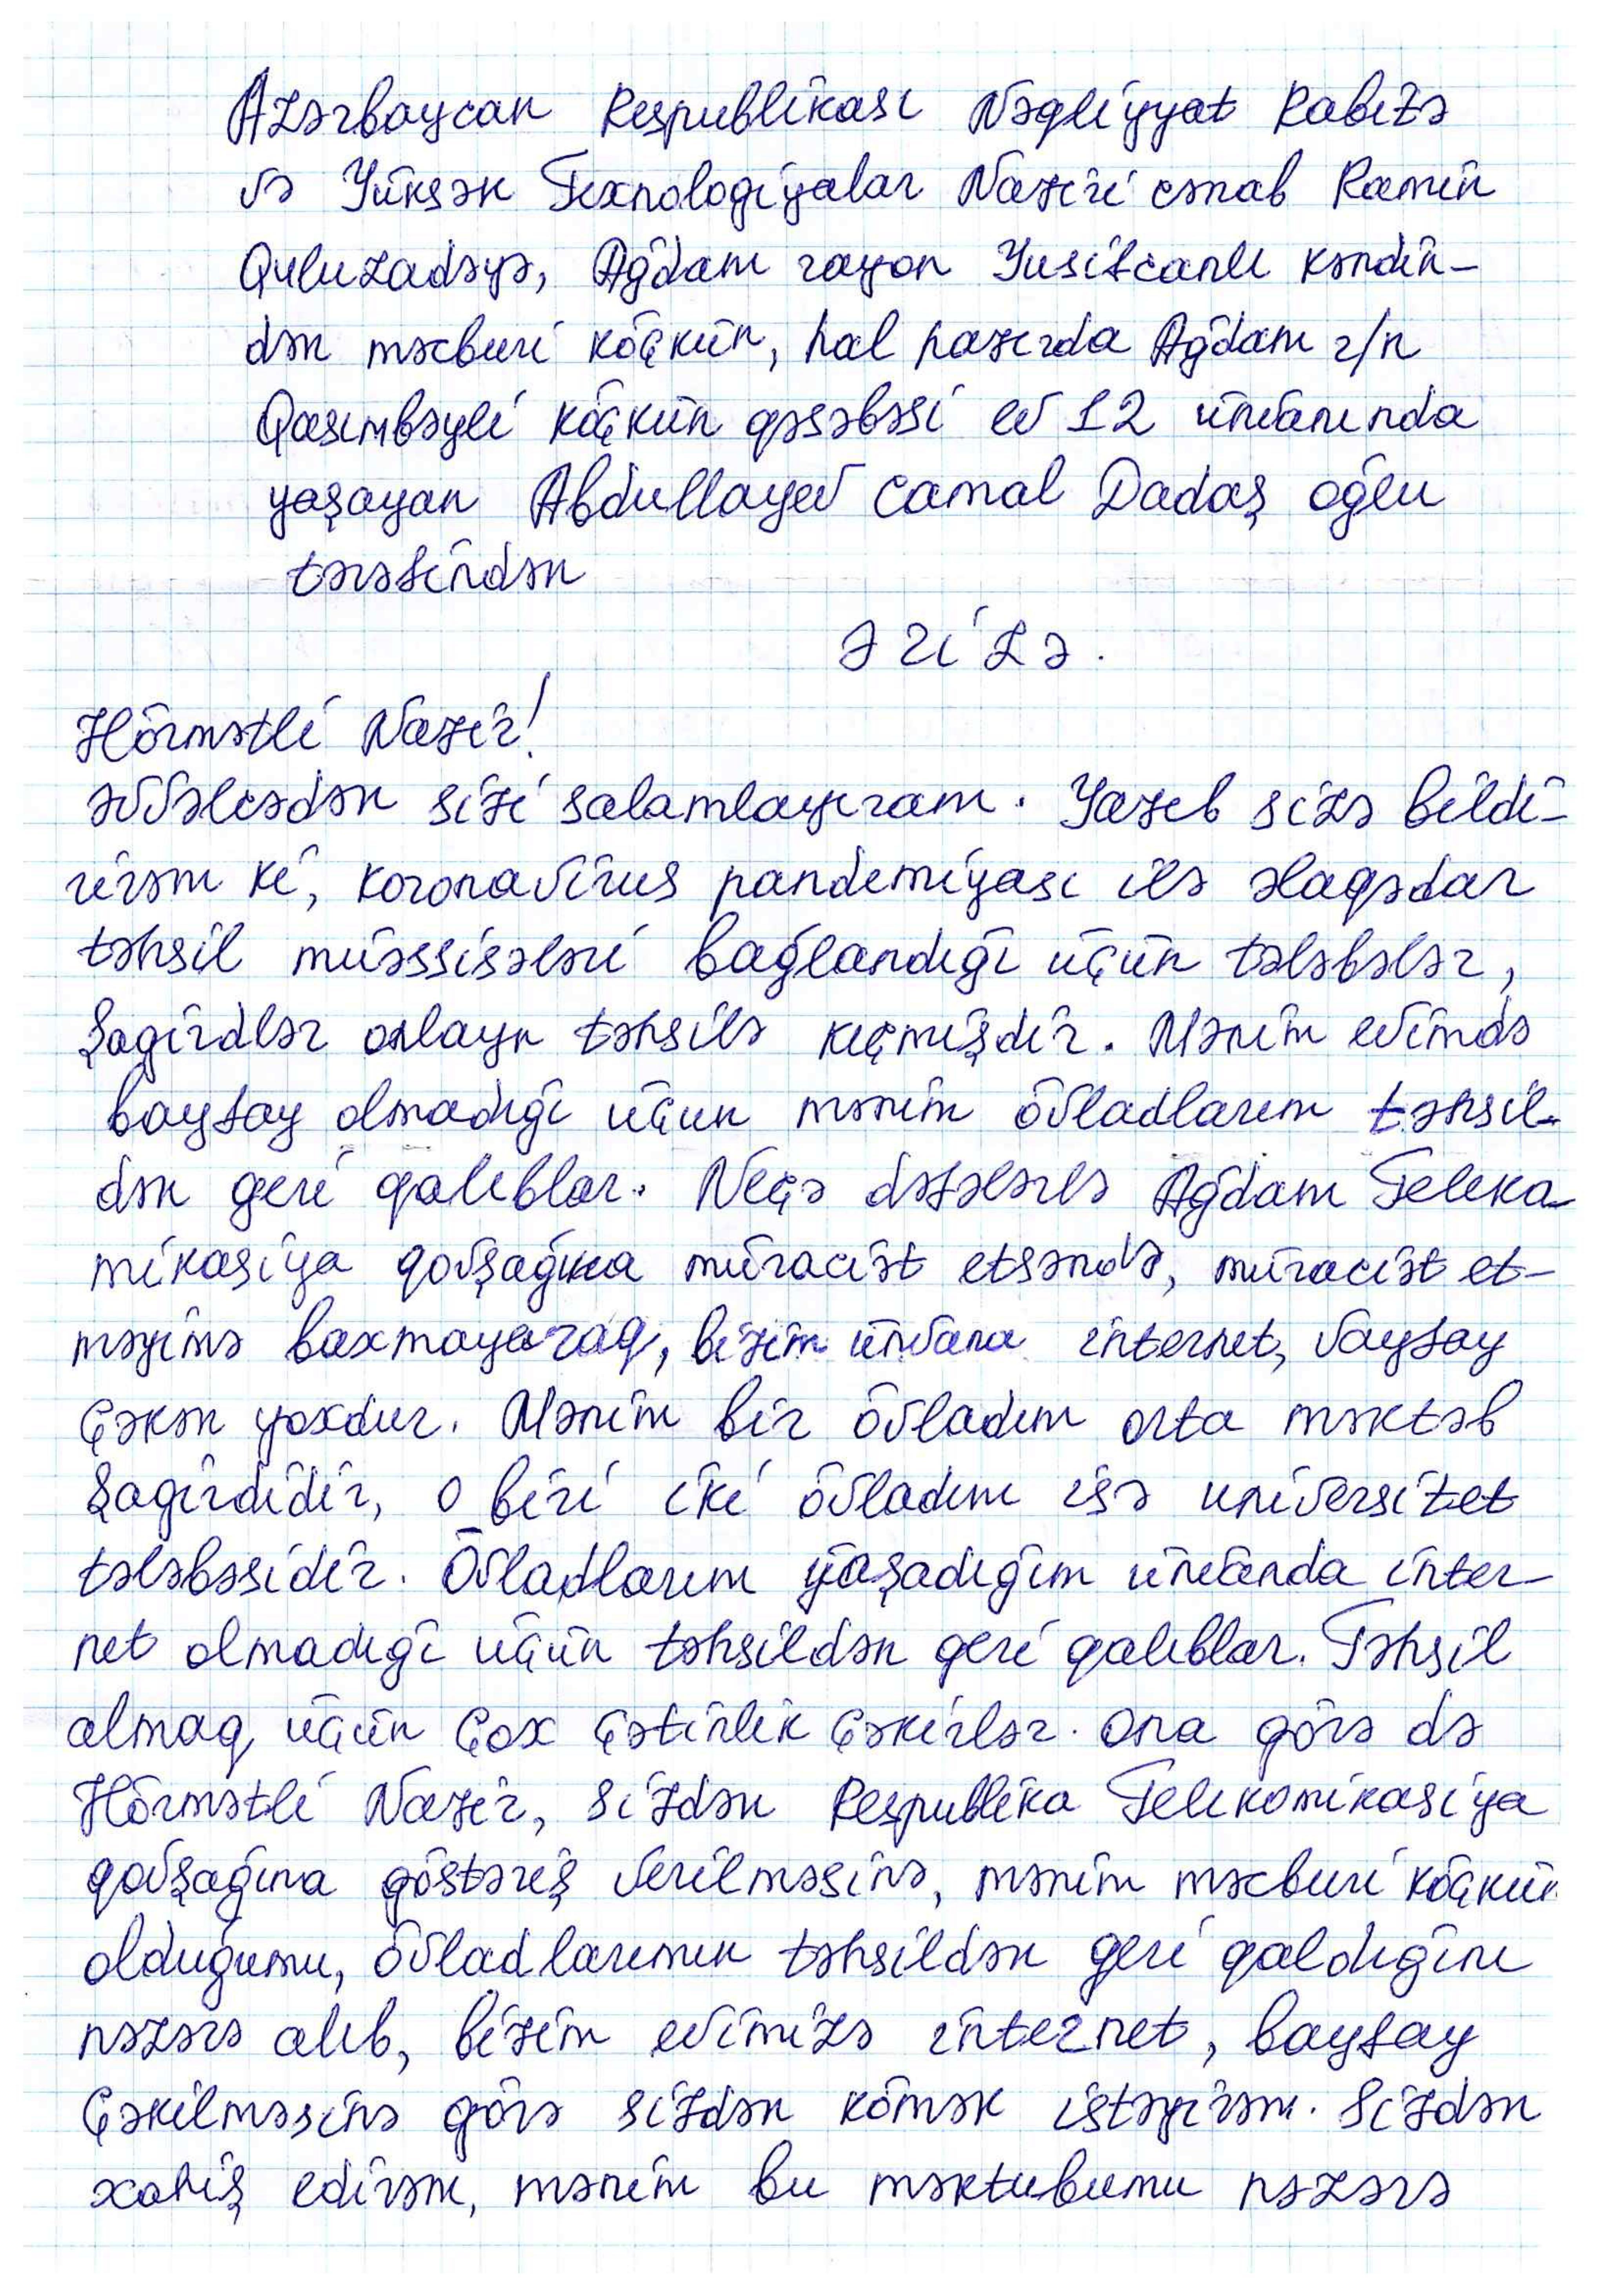 Azərbaycan Respublikası Nəqliyyat Rabitə
və Yüksək Texnologiyalar Naziri cənab Ramin
Quluzadəyə, Ağdam rayon Yusifcanlı kəndin-
dən məcburi köçkün, hal hazırda Ağdam r/n
Qasımbəyli köçkün qəsəbəsi ev 12 ünvanında
yaşayan Abdullayev Camal Dadaş oğlu
tərəfindən
Ərizə.
Hörmətli Nazir!
Əvvəlcədən sizi salamlayıram. Yazıb sizə bildi-
rirəm ki, koronavirus pandemiyası ilə əlaqədar
təhsil müəssisələri bağlandığı üçün tələbələr,
şagirdlər onlayn təhsilə keçmişdir. Mənim evimdə
bayfay olmadığı üçün mənim övladlarım təhsil-
dən geri qalıblar. Neçə dəfələrlə Ağdam Teleka-
mikasiya qovşağına müraciət etsəmdə, müraciət et-
məyimə baxmayaraq, bizim ünvana internet, vayfay
çəkən yoxdur. Mənim bir övladım orta məktəb
şagirdidir, o biri iki övladım isə universitet
tələbəsidir. Övladlarım yaşadığım ünvanda inter-
net olmadığı üçün təhsildən geri qalıblar. Təhsil
almaq üçün çox çətinlik çəkirlər. Ona görə də
Hörmətli Nazir, sizdən Respublika Telekomikasiya
qovşağına göstəriş verilməsinə, mənim məcburi köçkün
olduğumu, övladlarımın təhsildən geri qaldığını
nəzərə alıb, bizim evimizə internet, bayfay
çəkilməsinə görə sizdən kömək istəyirəm. Sizdən
xahiş edirəm, mənim bu məktubumu nəzərə